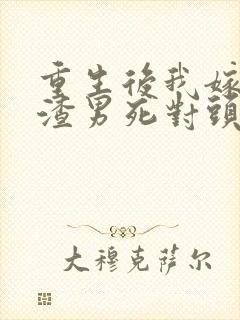 重生後我嫁
渣男死對頭
大穆克萨尔